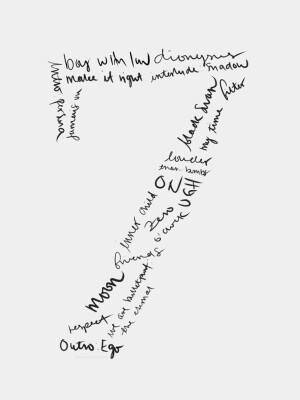 boy with luv dionysus
make it right interlude: shadow
intro: persona
jamais vu
black swan
my time filter
louder
than bombs
ON
UGH
inner child
zero
o'clock
friends
Moon
we are bulletproof
the eternal
respect
Outro: Ego